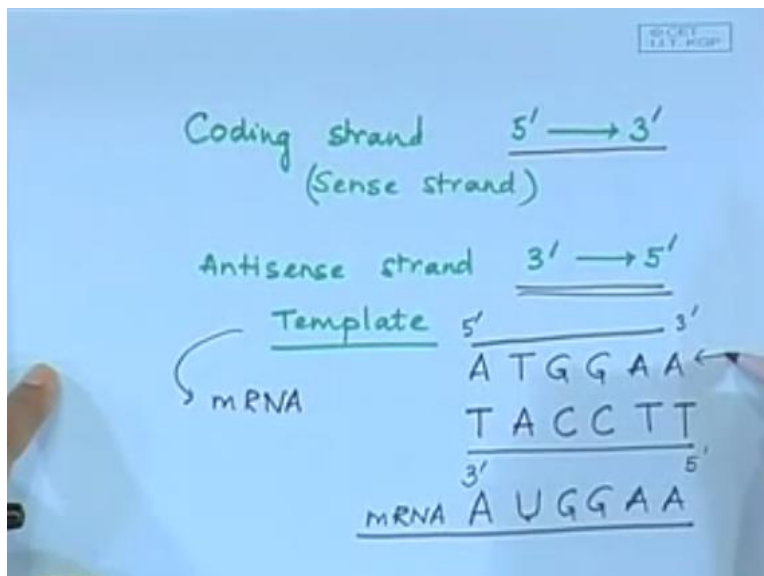 © CET
I.I.T. KGP
Coding strand 5' ⟶ 3'
(Sense strand)
Antisense strand 3' ⟶ 5'
Template 5' 3'
A T G G A A ←
mRNA T A C C T T
3' 5'
mRNA A U G G A A